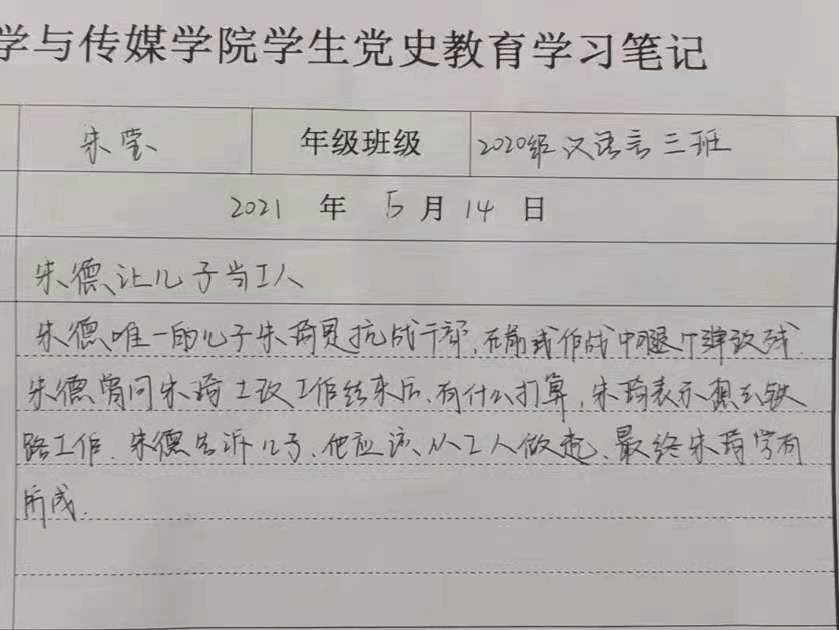 学与传媒学院学生党史教育学习笔记
朱莹 年级班级 2020级汉语言三班
2021 年 5 月 14 日
朱德让儿子当工人
朱德唯一的儿子朱琦是抗战干部,在前线作战中腿中弹致残.
朱德曾问朱琦土改工作结束后,有什么打算,朱琦表示想去铁
路工作.朱德告诉儿子,他应该从工人做起,最终朱琦学有
所成.